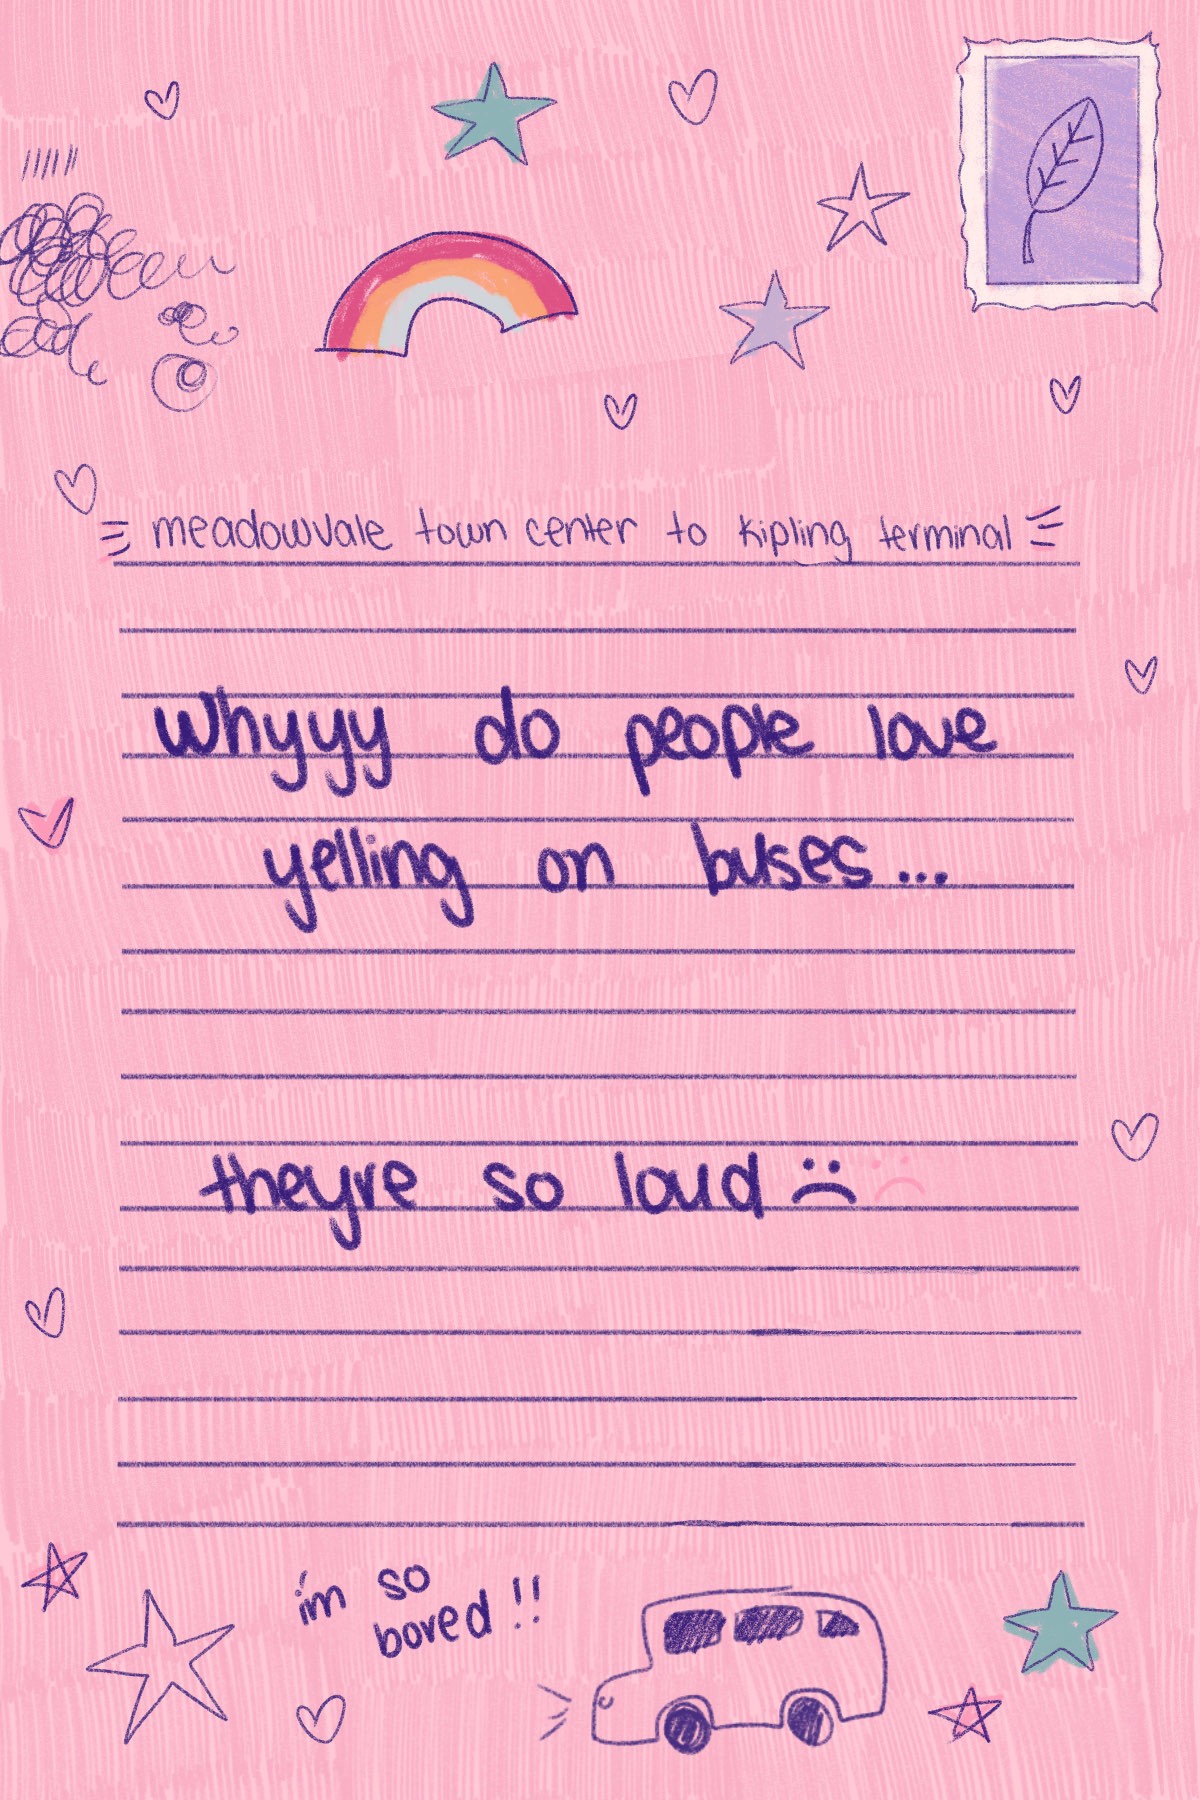 meadowvale town center to kipling terminal
Whyyy do people love
yelling on buses...
theyre so loud :(
i'm so
bored !!